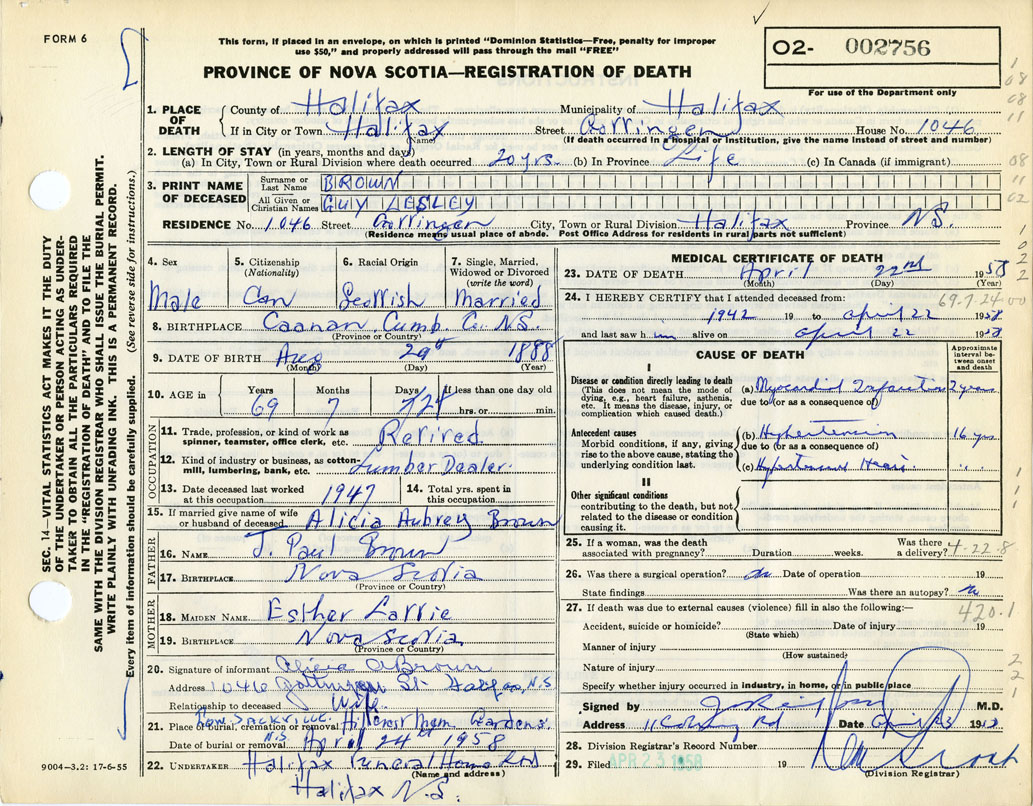 FORM 6
This form, if placed in an envelope, on which is printed "Dominion Statistics—Free, penalty for improper
use $50," and properly addressed will pass through the mail "FREE"
PROVINCE OF NOVA SCOTIA—REGISTRATION OF DEATH
O2- 002756
For use of the Department only
SEC. 14—VITAL STATISTICS ACT MAKES IT THE DUTY
OF THE UNDERTAKER OR PERSON ACTING AS UNDER-
TAKER TO OBTAIN ALL THE PARTICULARS REQUIRED
IN THE "REGISTRATION OF DEATH" AND TO FILE THE
SAME WITH THE DIVISION REGISTRAR WHO SHALL ISSUE THE BURIAL PERMIT.
WRITE PLAINLY WITH UNFADING INK. THIS IS A PERMANENT RECORD.
Every item of information should be carefully supplied. (See reverse side for instructions.)
1. PLACE OF DEATH County of Halifax Municipality of Halifax
If in City or Town Halifax (Name) Street Gottingen House No. 1046
(If death occurred in a hospital or institution, give the name instead of street and number)
2. LENGTH OF STAY (in years, months and days)
(a) In City, Town or Rural Division where death occurred 20 yrs. (b) In Province Life (c) In Canada (if immigrant)
3. PRINT NAME OF DECEASED Surname or Last Name BROWN
All Given or Christian Names GUY LESLEY
RESIDENCE No. 1046 Street Gottingen City, Town or Rural Division Halifax Province N.S.
(Residence means usual place of abode. Post Office Address for residents in rural parts not sufficient)
4. Sex Male
5. Citizenship (Nationality) Can
6. Racial Origin Scottish
7. Single, Married, Widowed or Divorced (write the word) Married
8. BIRTHPLACE Caanan, Cumb. Co. N.S.
(Province or Country)
9. DATE OF BIRTH Aug 29th 1888
(Month) (Day) (Year)
10. AGE in Years 69 Months 7 Days 24 If less than one day old hrs. or min.
OCCUPATION
11. Trade, profession, or kind of work as spinner, teamster, office clerk, etc. Retired.
12. Kind of industry or business, as cotton-mill, lumbering, bank, etc. Lumber Dealer.
13. Date deceased last worked at this occupation 1947
14. Total yrs. spent in this occupation
15. If married give name of wife or husband of deceased Alicia Aubrey Brown
FATHER
16. NAME J. Paul Brown
17. BIRTHPLACE Nova Scotia
(Province or Country)
MOTHER
18. MAIDEN NAME Esther
19. BIRTHPLACE Nova Scotia
(Province or Country)
20. Signature of informant Alicia A Brown
Address 1046 Gottingen St. Halifax, N.S.
Relationship to deceased Wife
21. Place of burial, cremation or removal Low Sackville. N.S. Hillcrest Mem. Gardens.
Date of burial or removal April 24th 1958
22. UNDERTAKER Halifax Funeral Home Ltd
(Name and address)
Halifax N.S.
9004-3.2: 17-6-55
MEDICAL CERTIFICATE OF DEATH
23. DATE OF DEATH April 22nd 1958
(Month) (Day) (Year)
24. I HEREBY CERTIFY that I attended deceased from: 69-7-24-00
1942 19 to April 22 1958
and last saw him alive on April 22 1958
CAUSE OF DEATH
Approximate interval between onset and death
I
Disease or condition directly leading to death
(This does not mean the mode of dying, e.g., heart failure, asthenia, etc. It means the disease, injury, or complication which caused death.)
(a) Myocardial Infarction 2 years
due to (or as a consequence of)
Antecedent causes
Morbid conditions, if any, giving rise to the above cause, stating the underlying condition last.
(b) Hypertension 16 yrs
due to (or as a consequence of)
(c) Hypertensive Heart "
II
Other significant conditions
contributing to the death, but not related to the disease or condition causing it.
25. If a woman, was the death associated with pregnancy? Duration weeks. Was there a delivery? 4-22-8
26. Was there a surgical operation? no Date of operation 19
State findings Was there an autopsy? no
27. If death was due to external causes (violence) fill in also the following:— 420.1
Accident, suicide or homicide? Date of injury 19
(State which)
Manner of injury
(How sustained)
Nature of injury
Specify whether injury occurred in industry, in home, or in public place
Signed by M.D.
Address Rd Date April 23 1958
28. Division Registrar's Record Number
29. Filed APR 23 1958 19
(Division Registrar)